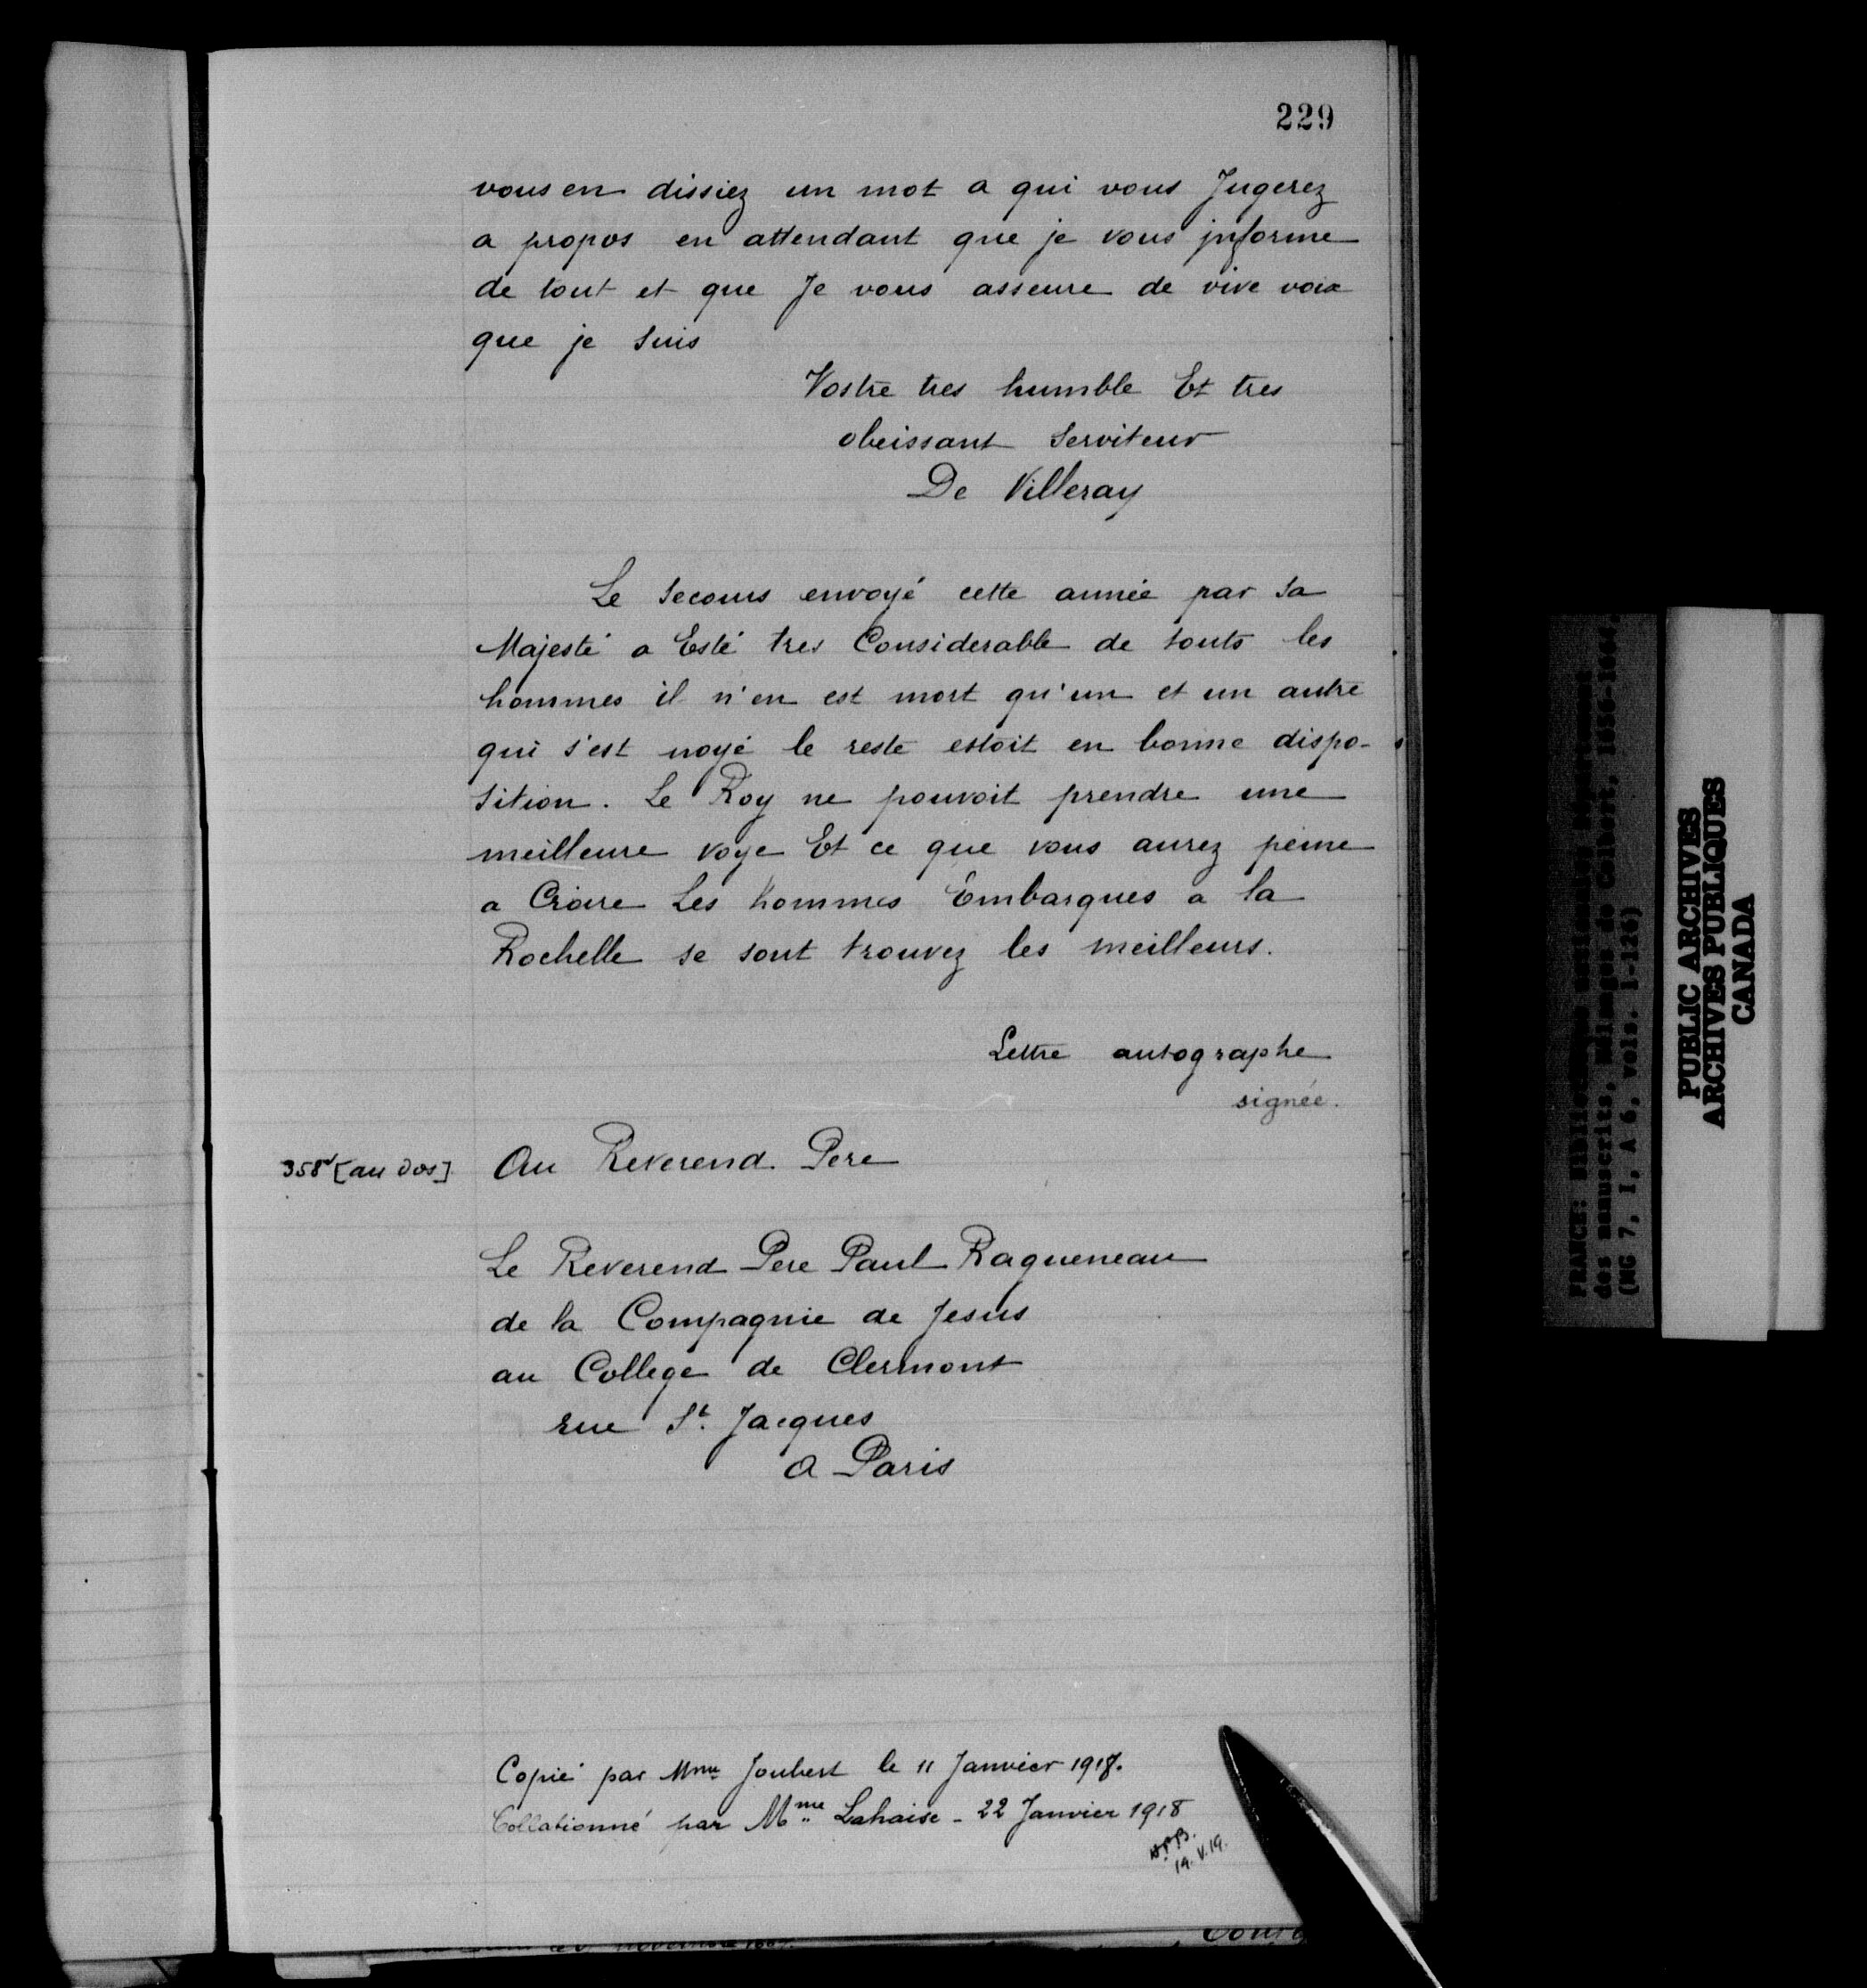 229
vous en dissiez un mot a qui vous Jugerez
a propos en attendant que je vous jnforme
de tout et que Je vous asseure de vive voix
que je suis
Vostre tres humble Et tres
obeissant serviteur
De Villeray
Le secours envoyé cette année par sa
Majesté a Esté tres Considerable de touts les
hommes il n'en est mort qu'un et un autre
qui s'est noyé le reste estoit en bonne dispo-
sition. Le Roy ne pouvoit prendre une
meilleure voye Et ce que vous aurez peine
a Croire Les hommes Embarques a la
Rochelle se sont trouvez les meilleurs.
Lettre autographe
signée.
358v [au dos] Au Reverend Pere
Le Reverend Pere Paul Ragueneau
de la Compagnie de Jesus
au College de Clermont
rue St. Jacques
a Paris
Copié par Mme Joubert le 11 Janvier 1918.
Collationné par Mme Lahaise - 22 Janvier 1918
H.P.B.
19.V.19.
FRANCE:
des manuscrits, Mélanges de Colbert, 1656-
(MG 7, I, A 6, vols. 1-126)
PUBLIC ARCHIVES
ARCHIVES PUBLIQUES
CANADA